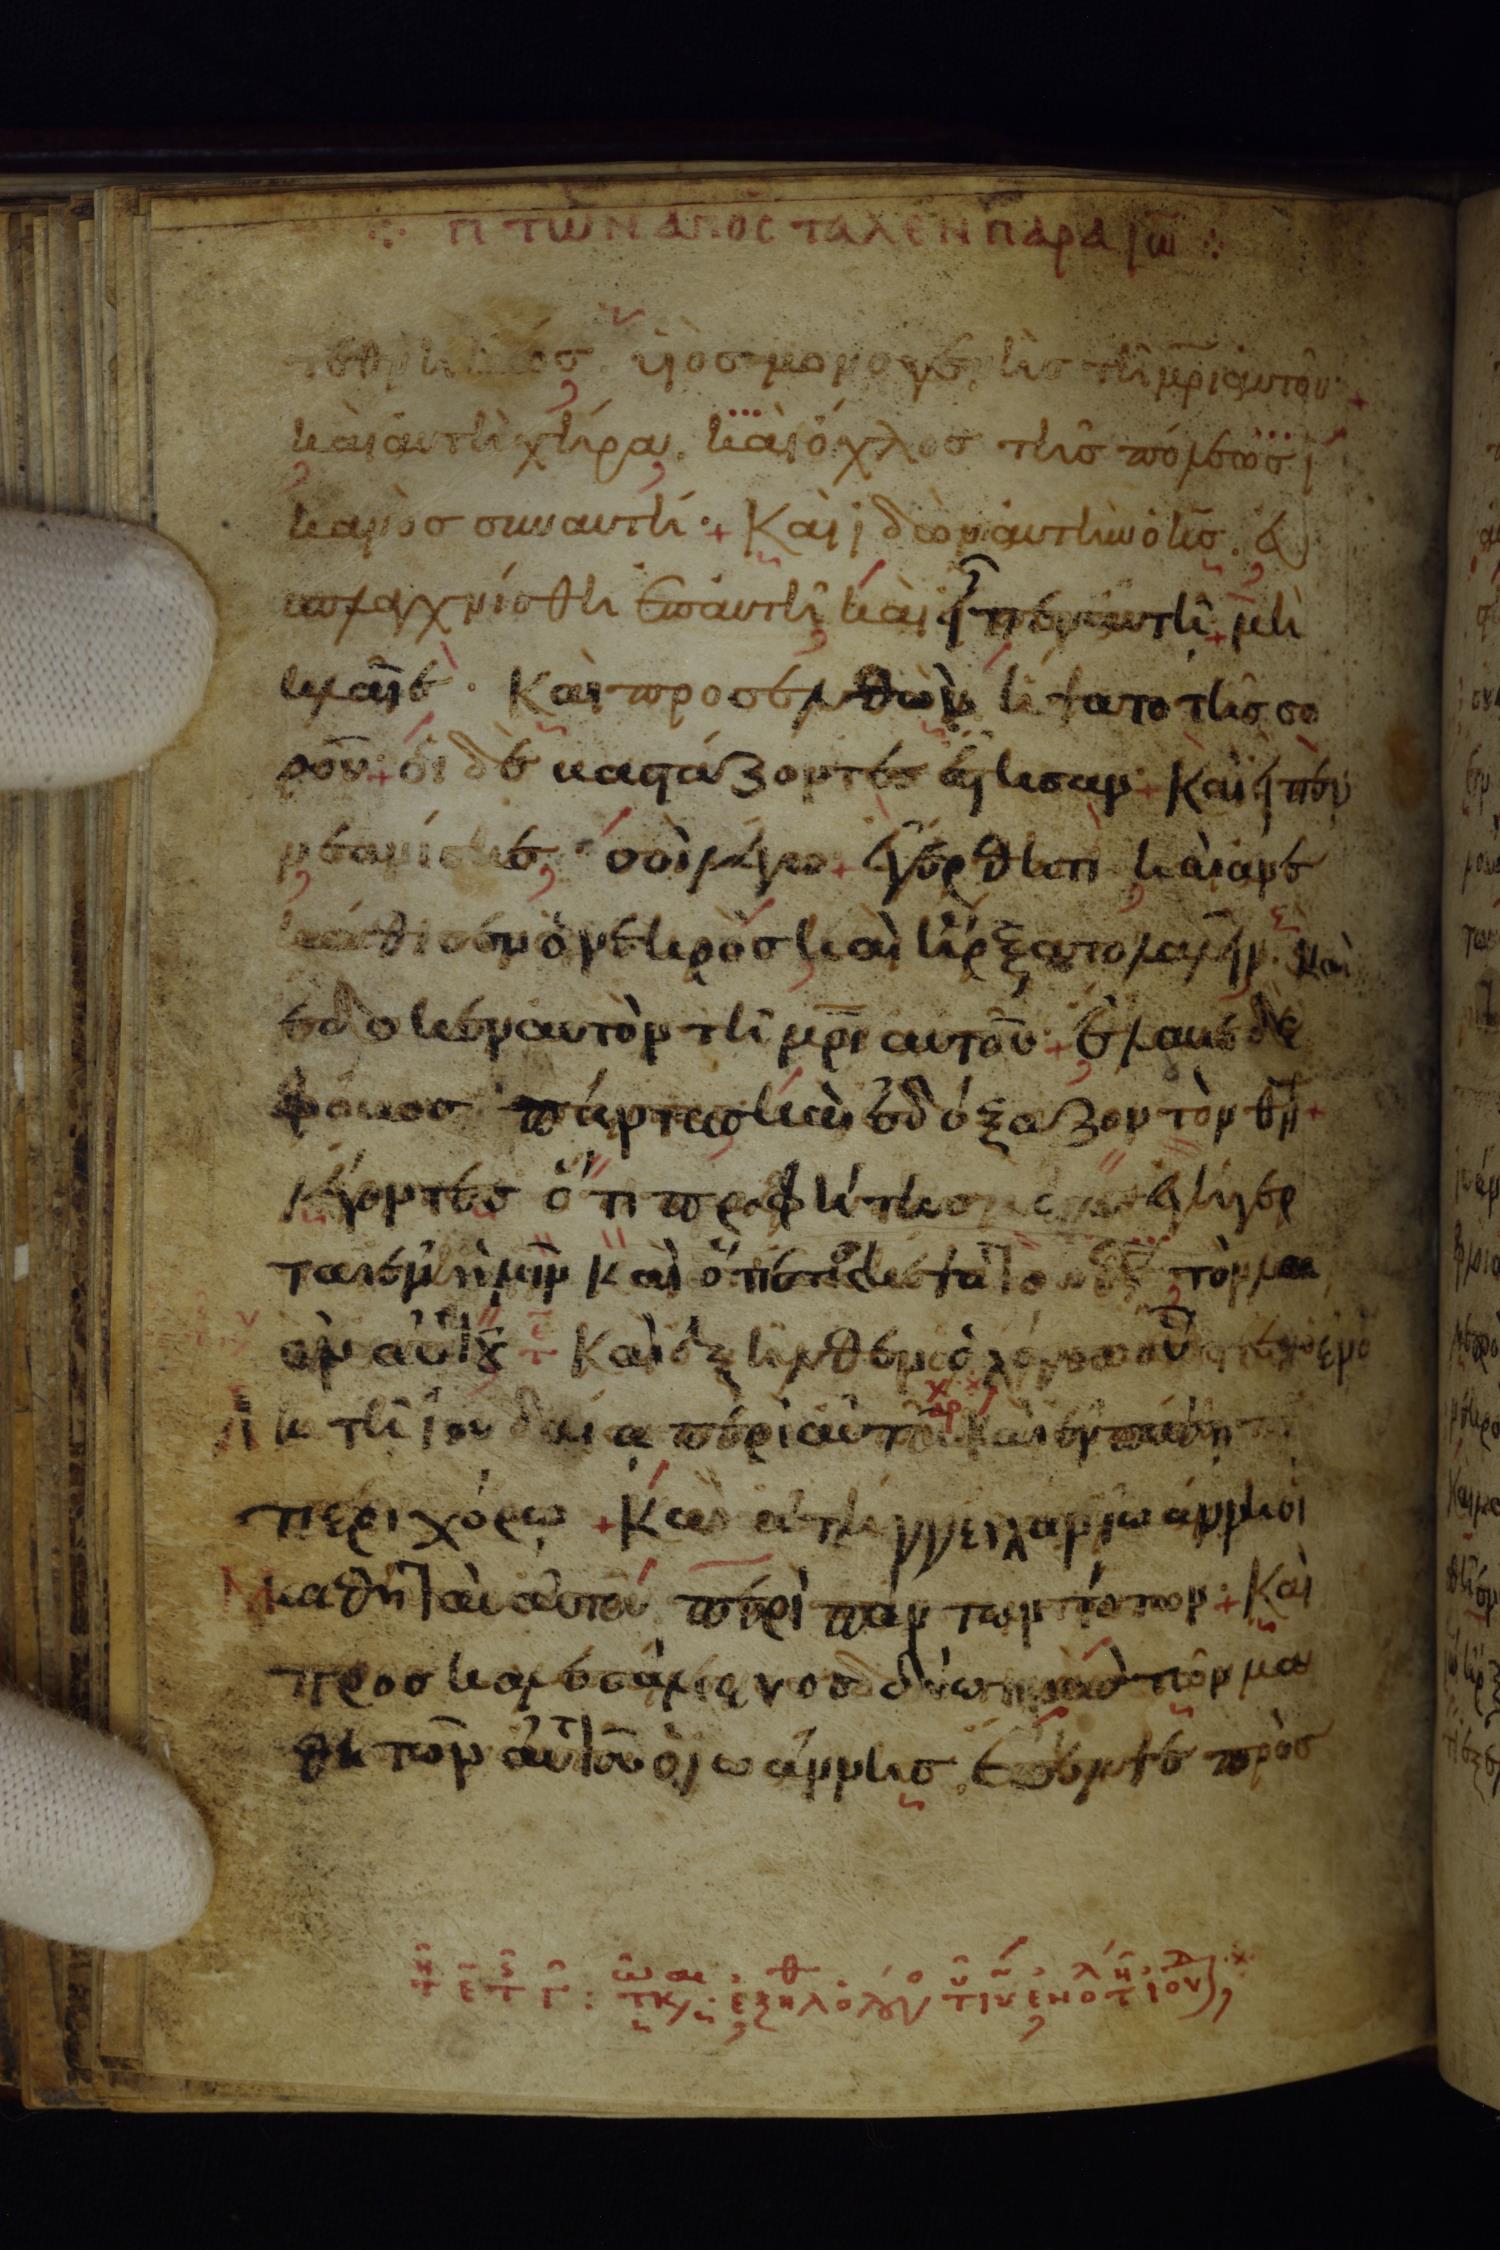 π τῶν ἀποσταλεν παρα ϊω
τεθνηκὼς υἱὸσ μονογενὴσ τῆ μρι αυτοῦ
καὶ αυτὴ χήρα καὶ ὄχλοσ τῆσ πόλεωσ ϊ
κανὸσ συν αυτῆ + Καὶ ϊδὼν αυτὴν ὁ κσ ἐ
σπλαγχνίσθη ἐπ αυτῆ καὶ εἶπεν αυτῆ + μὴ
κλαῖε Καὶ προσελθὼν ἥψατο τῆσ σο
ροῦ + ὁι δὲ βαστάζοντεσ ἔστησαν + Καὶ εἶπεν
νεανίσκε σοὶ λέγω + ἐγέρθητι καὶ ἀνε
κάθισεν ὁ νεκρὸσ καὶ ἤρξατο λαλεῖν καὶ
ἔδωκεν αυτὸν τῆ μρι αυτοῦ + ἔλαβε δὲ
φόβοσ πάντασ καὶ ἐδόξαζον τὸν θν +
λέγοντεσ ὅτι προφήτησ μέγασ ἐγήγερ
ται ἐν ἡμῖν καὶ ὅτι ἐπεσκέψατο ὁ θσ τὸν λα
ὸν αὐτοῦ Καὶ ἐξῆλθεν ὁ λόγοσ οὗτοσ ἐν ὅ
λη τῆ ϊουδαία περὶ αὐτοῦ καὶ ἐν πάση τῆ
περιχώρω + Καὶ ἀπήγγειλαν ϊωάννη οἱ
μαθηταὶ αὐτοῦ περὶ πάντων τούτων + Καὶ
προσκαλεσάμενοσ δύο τινὰσ τῶν μα
θητῶν αὐτοῦ ὁ ϊωάννησ ἔπεμψε πρὸσ